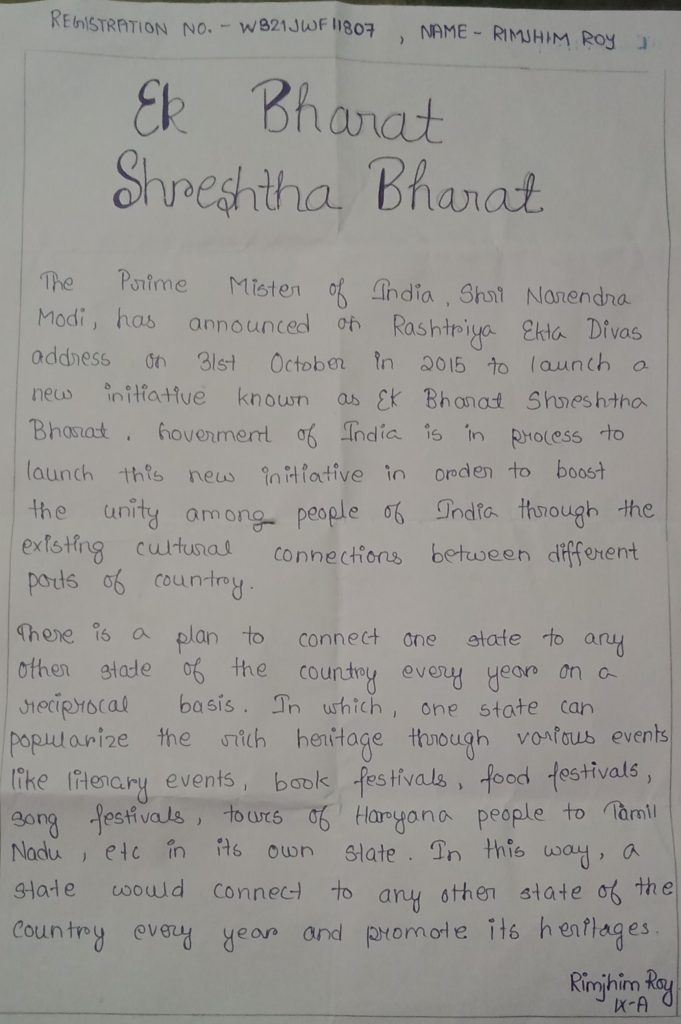 REGISTRATION NO. - WB21JWF11807 , NAME - RIMJHIM ROY
Ek Bharat
Shreshtha Bharat
The Prime Mister of India, Shri Narendra
Modi, has announced on Rashtriya Ekta Divas
address on 31st October in 2015 to launch a
new initiative known as Ek Bharat Shreshtha
Bharat. Goverment of India is in process to
launch this new initiative in order to boost
the unity among people of India through the
existing cultural connections between different
parts of country.
There is a plan to connect one state to any
other state of the country every year on a
reciprocal basis. In which, one state can
popularize the rich heritage through various events
like literary events, book festivals, food festivals,
song festivals, tours of Haryana people to Tamil
Nadu, etc in its own state. In this way, a
state would connect to any other state of the
country every year and promote its heritages.
Rimjhim Roy
IX-A